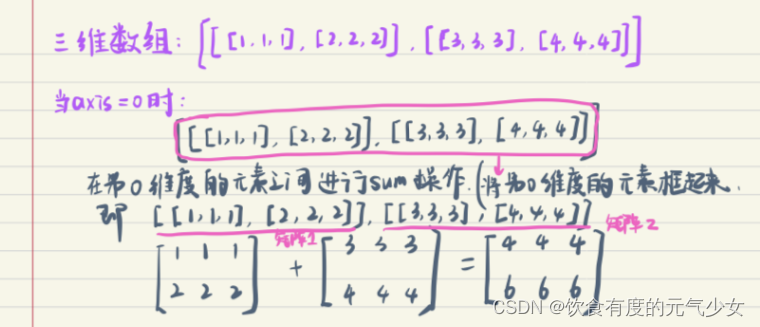 三维数组: [[[1,1,1], [2,2,2]], [[3,3,3], [4,4,4]]]
当axis=0时:
[[[1,1,1], [2,2,2]], [[3,3,3], [4,4,4]]]
在第0维度的元素之间进行sum操作.(将第0维度的元素框起来.
即 [[1,1,1], [2,2,2]], [[3,3,3], [4,4,4]]
矩阵1 矩阵2
1 1 1 + 3 3 3 = 4 4 4
2 2 2 4 4 4 6 6 6
CSDN @饮食有度的元气少女